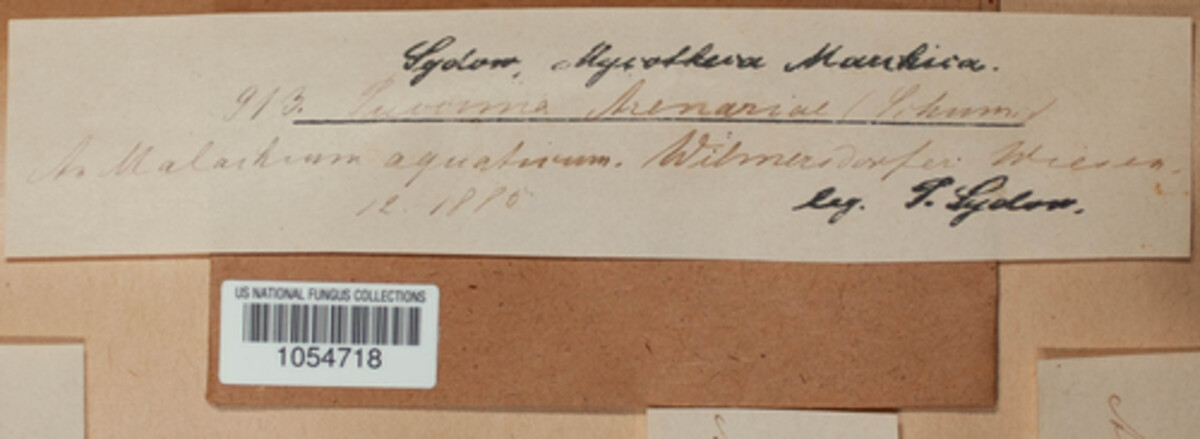 Sydow, Mycotheca Marchica.
913. Puccinia Arenariae (Schum.)
An Malachium aquaticum. Wilmersdorfer Wiesen.
12. 1885
leg. P. Sydow.
US NATIONAL FUNGUS COLLECTIONS
1054718